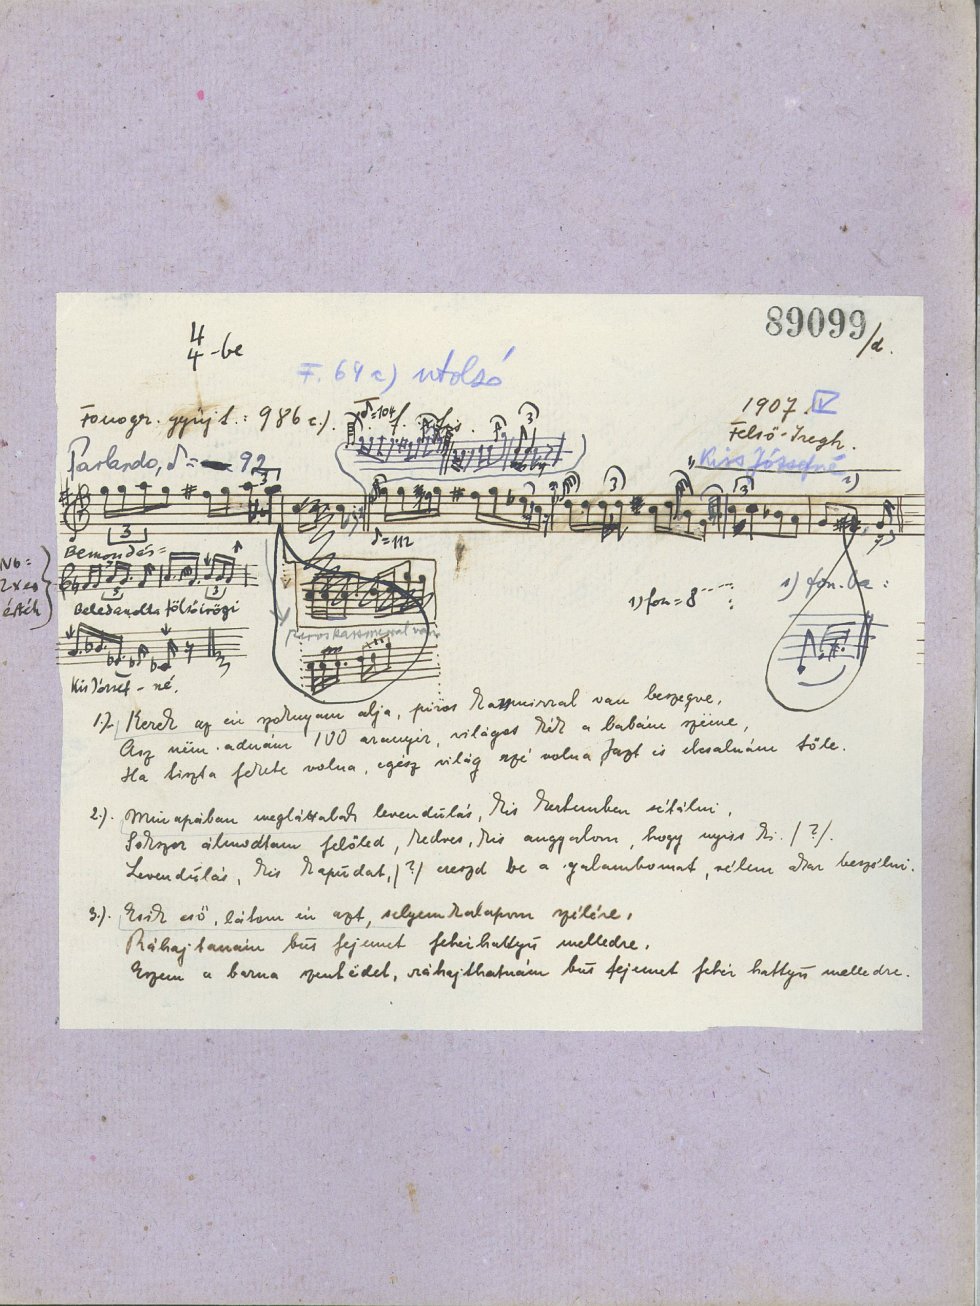 89099/d.
4/4-be
F. 64 c) utolsó
Fonogr. gyűjt.: 986 c).
1907. IV
Felső-Iregh.
Kiss Józsefné
♪=104
Parlando, ♪= 92
♪=112
Bemondás=
Nb:
2x es
érték
Beledandta fölsőirögi
Kis József-né.
piros kazsmirral van
1) fon=8
1) fon.ba:
1.) Kerek az én szoknyám alja, piros kazsmirral van beszegve,
Asz nëm adnám 100 aranyér, világos kék a babám szëme,
Ha tiszta fekete volna, egész világ szé volna Jazt is elcsalnám tőle.
2.). Minapában megláttalak levendulás, kis kertemben sétálni,
Sokszor álmodtam felőled, kedves, kis angyalom, hogy nyiss ki. (?).
Levendulás, kis kapudat, (?) ereszd be a galambomat, vélem akar beszélni.
3.). Esik eső, látom én azt, selyem kalapom szélére,
Ráhajtanám bús fejemet fehér hattyú melledre,
Eszem a barna szentëdet, ráhajthatnám bús fejemet fehér hattyú melledre.